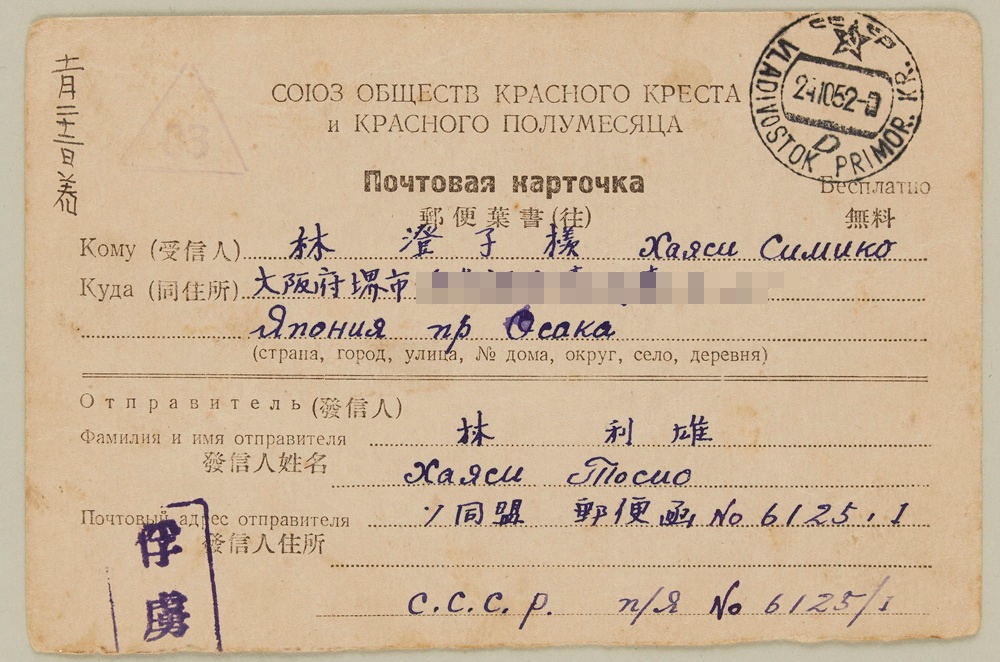 十一月二十三日着
СОЮЗ ОБЩЕСТВ КРАСНОГО КРЕСТА
и КРАСНОГО ПОЛУМЕСЯЦА
СССР
VLADIVOSTOK PRIMOR. KR.
24.10.52
D
Почтовая карточка
Бесплатно
郵便葉書(往)
無料
Кому (受信人) 林 澄子 様 Хаяси Симико
Куда (同住所) 大阪府堺市
Япония пр Осака
(страна, город, улица, № дома, округ, село, деревня)
Отправитель (發信人)
Фамилия и имя отправителя 林 利雄
發信人姓名
Хаяси Тосио
Почтовый адрес отправителя ソ同盟 郵便函 No 6125.I
發信人住所
С.С.С.р. п/я No 6125/I
俘虜